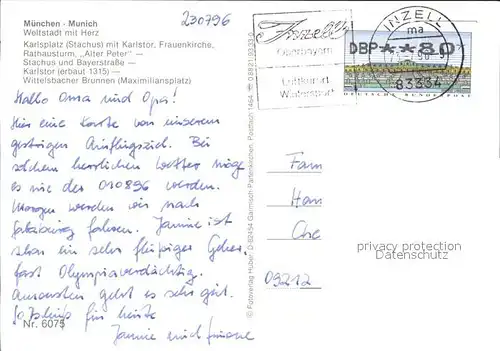 München - Munich
Weltstadt mit Herz
Karlsplatz (Stachus) mit Karlstor, Frauenkirche,
Rathausturm, „Alter Peter" —
Stachus und Bayerstraße —
Karlstor (erbaut 1315) —
Wittelsbacher Brunnen (Maximiliansplatz)
230796
Hallo Oma und Opa!
Hier eine Karte von unserem
gestrigen Ausflugsziel. Bei
solchem herrlichen Wetter möge
es nie der 010896 werden.
Morgen werden wir nach
Salzburg fahren. Janine ist
schon ein sehr fleißiger Geher,
fast Olympiaverdächtig.
Ansonsten geht es sehr gut.
für heute
Janine und
Nr. 6075
© Fotoverlag Huber, D-82454 Garmisch-Partenkirchen, Postfach 1464
Inzell
Oberbayern
Luftkurort
Wintersport
INZELL
ma
83334
DBP **80
DEUTSCHE BUNDESPOST
Fam
Han
Che
privacy protection
Datenschutz
09212